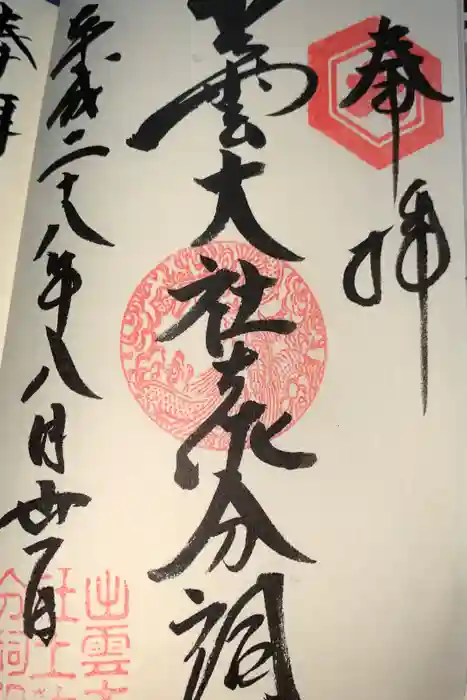 奉拝
出雲大社土佐分祠
平成二十八年八月廿一日
出雲大
社土
分祠
奉拝